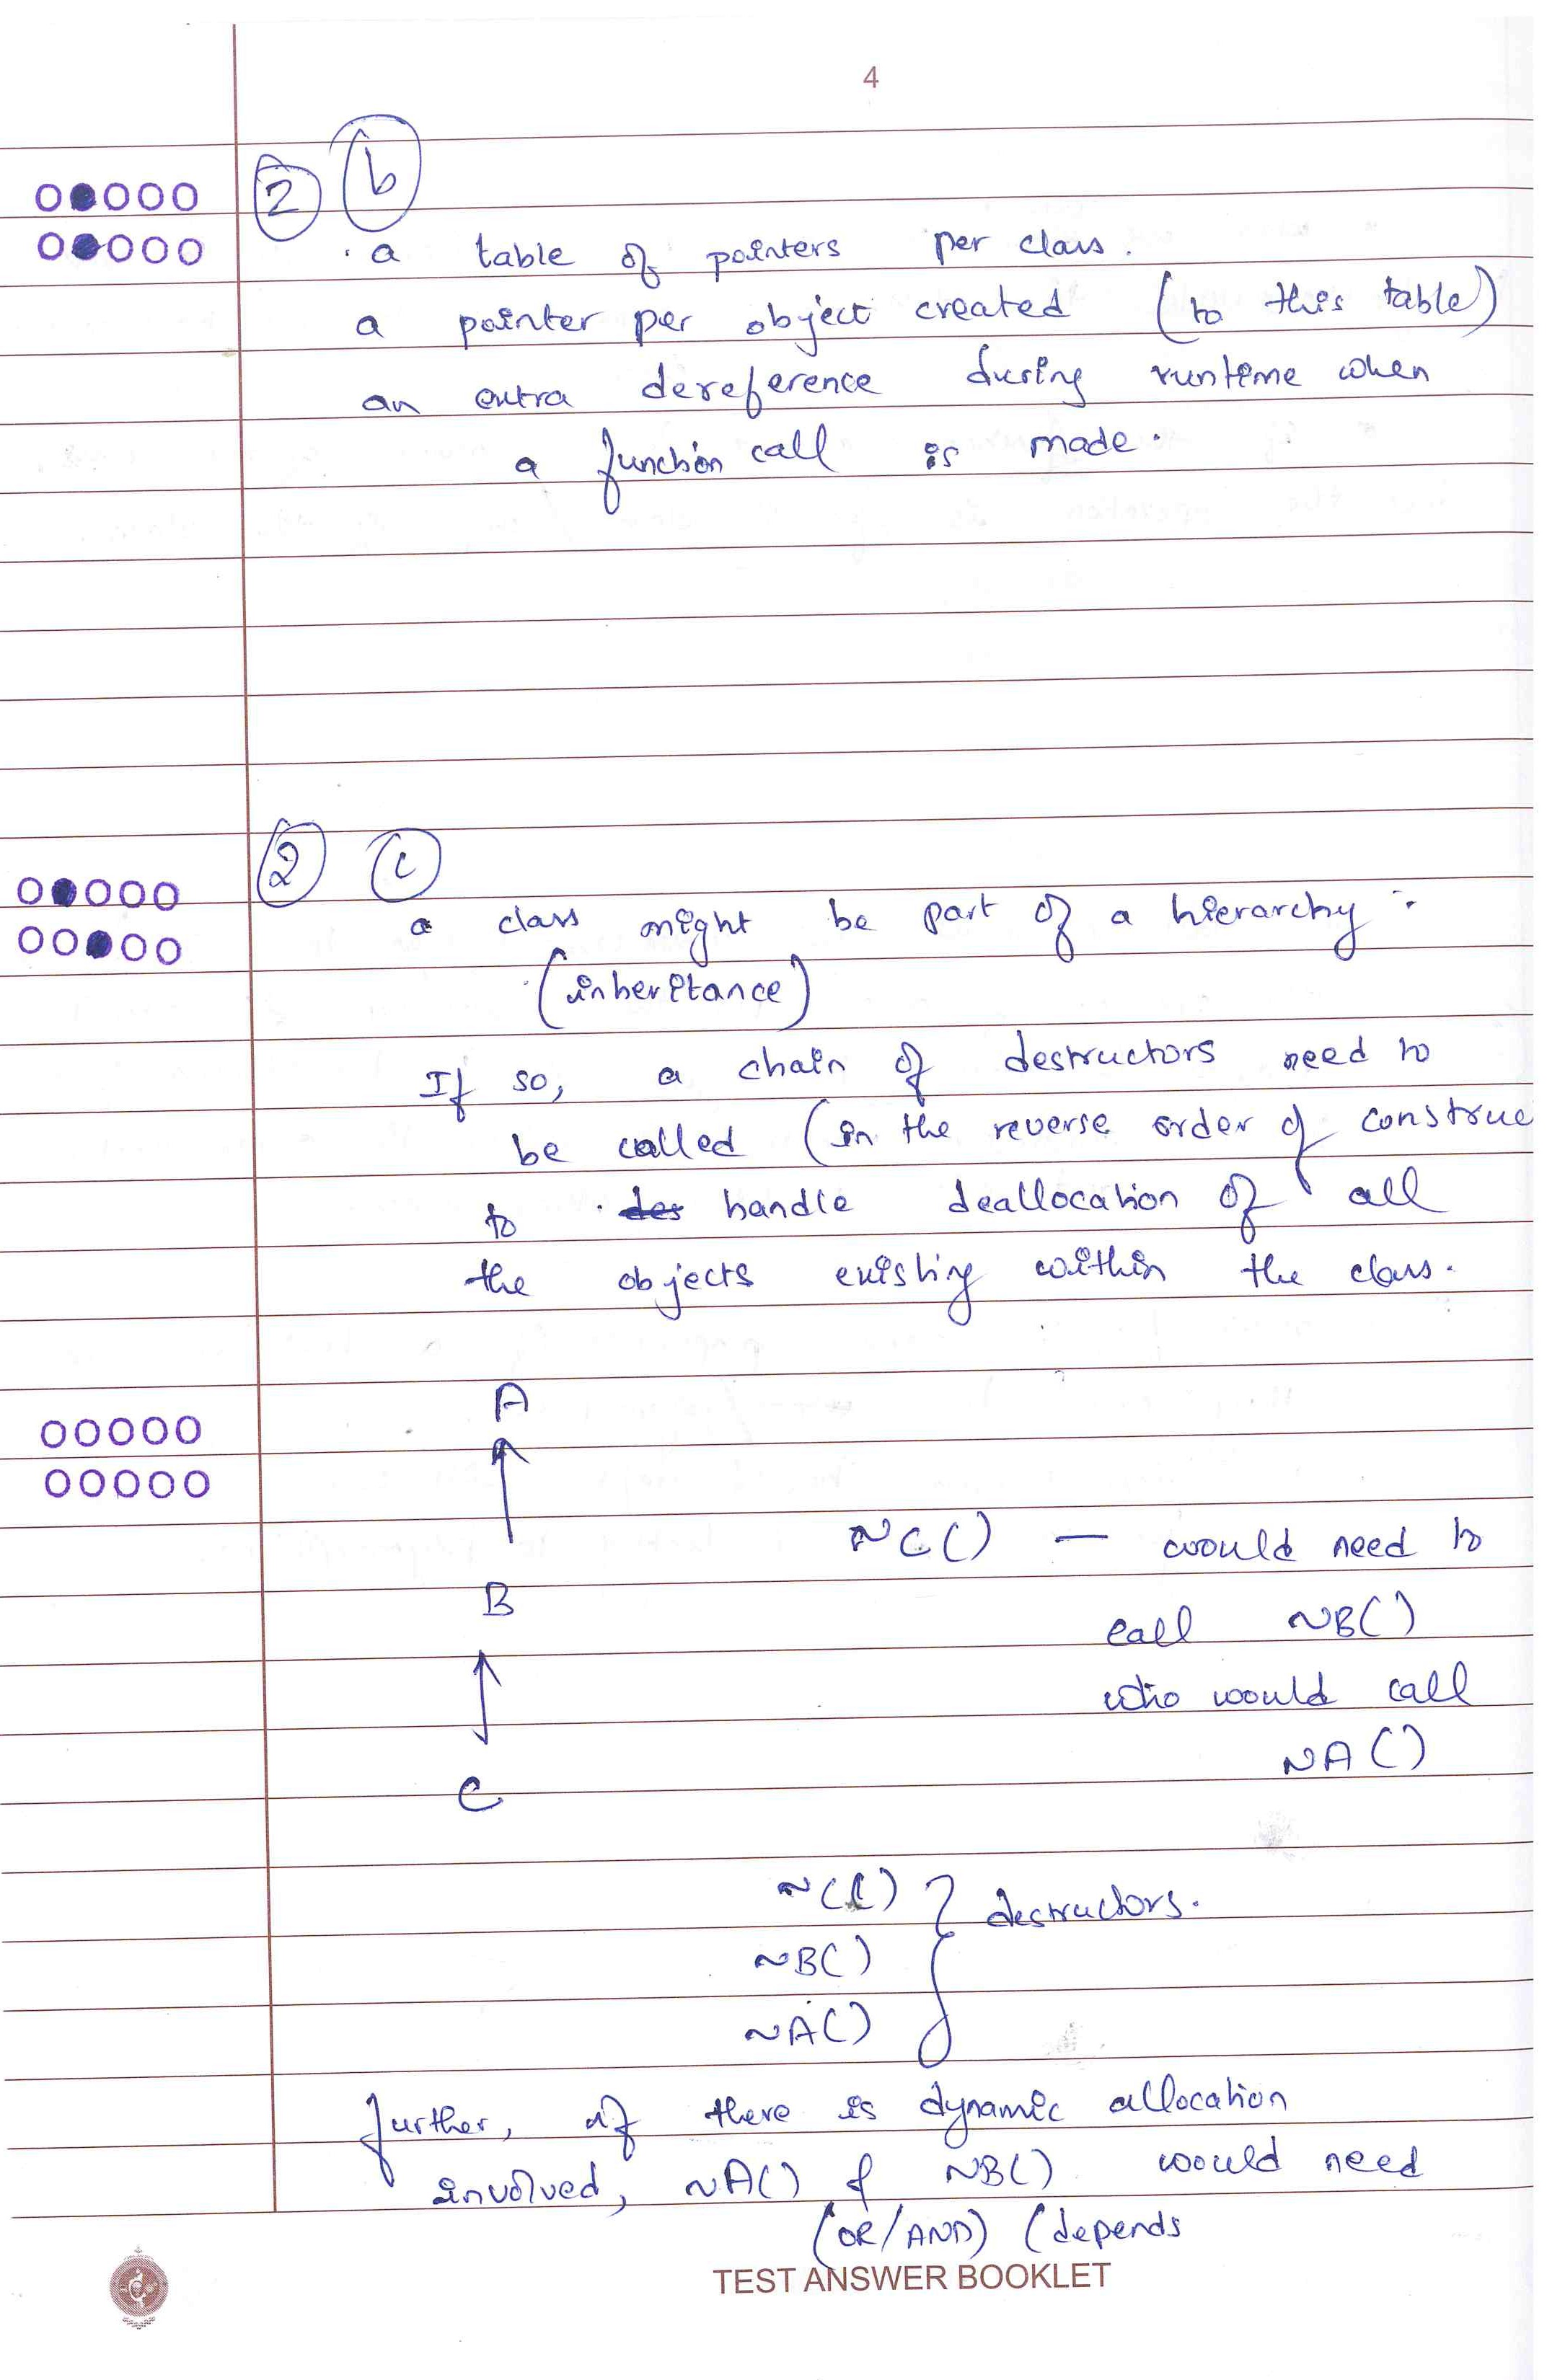 4
2 b
a table of pointers per class.
a pointer per object created (to this table)
an extra dereference during runtime when
a function call is made.
2 c
a class might be part of a hierarchy.
(inheritance)
If so, a chain of destructors need to
be called (in the reverse order of construc
to des handle deallocation of all
the objects existing within the class.
A
~C() — would need to
B
call ~B()
who would call
~A()
C
~C() } destructors.
~B()
~A()
further, if there is dynamic allocation
involved, ~A() & ~B() would need
(OR/AND) (depends
TEST ANSWER BOOKLET